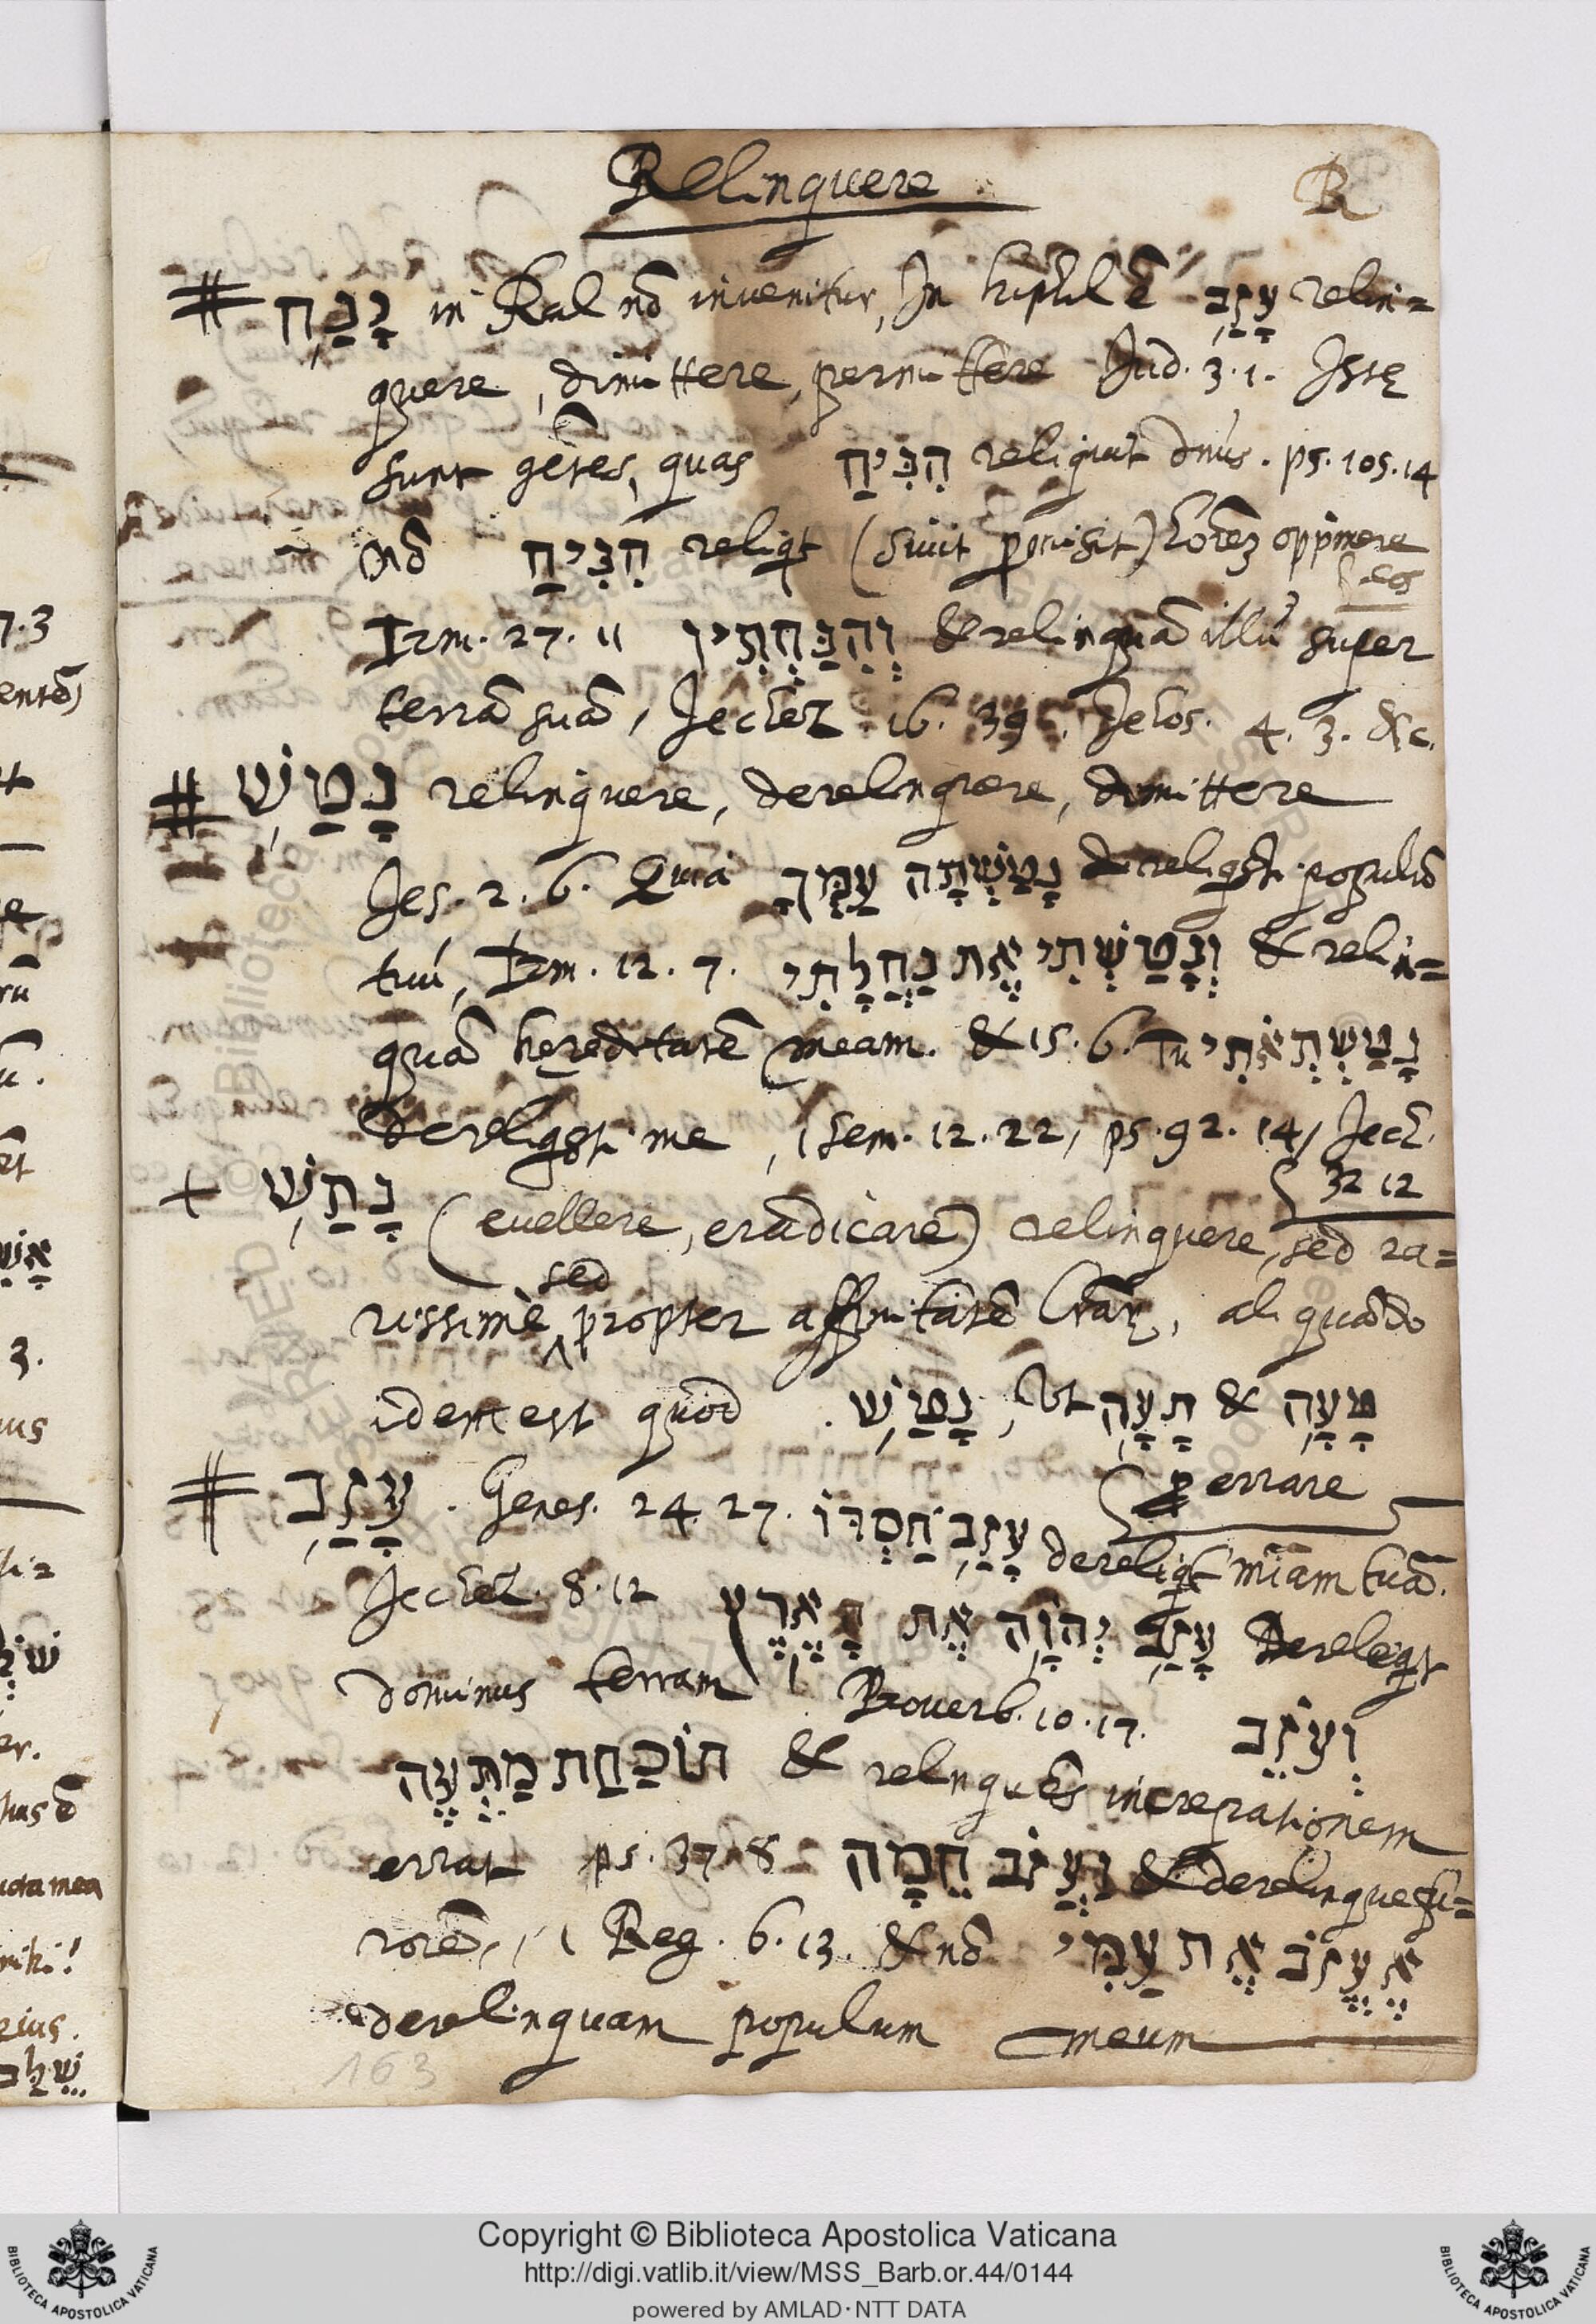 Relinquere
R
# נָנַח in Kal nō inuenitur, In hiphil ē עָזַב relin=
quere, dimittere, permittere Jud. 3. 1. Istę
sunt gētes, quas הִנִּיחַ reliquit dn̄us. ps. 105. 14
nō הִנִּיחַ reliqt (siuit ꝑmisit) hoīem opp̄mere
eos
Irm. 27. 11 וְהִנַּחְתִּיו & relinquā illū super
terrā suā, Jechez. 16. 39. Jehos. 4. 3. &c.
# נָטַשׁ relinquere, derelinquere, dimittere
Jes. 2. 6. Quia נָטַשְׁתָּה עַמְּךָ dereliqsti populū
tuū, Irm. 12. 7. וְנָטַשְׁתִּי אֶת נַחֲלָתִי & relin=
quā hęreditatē meam. & 15. 6. Tu נָטַשְׁתְּ אֹתִי
dereliqsti me, 1 Sem. 12. 22, ps. 92. 14, Jech.
32 12
+ נָתַשׁ (euellere, eradicare) relinquere, sed ra=
sed
rissimè propter affinitatē lr̄arų, aliquādo
idem est quod נָטַשׁ, vt תָּעָה & טָעָה
ꝓ errare
# עָזַב. Genes. 24. 27. עָזַב חַסְדּוֹ dereliqt mīam tuā.
Jechez. 8. 12 עָזַב יְהוָה אֶת הָאָרֶץ Dereliqt
dominus terram, Prouerb. 10. 17. וְעֹזֵב
תּוֹכַחַת מַתְעֶה & relinquēs increpationem
errat ps. 37. 8 וַעֲזֹב חֵמָה & derelinque fu=
rorē, 1 Reg. 6. 13. & nō אֶעֱזֹב אֶת עַמִּי
derelinquam populum meum
163
Copyright © Biblioteca Apostolica Vaticana
http://digi.vatlib.it/view/MSS_Barb.or.44/0144
powered by AMLAD·NTT DATA